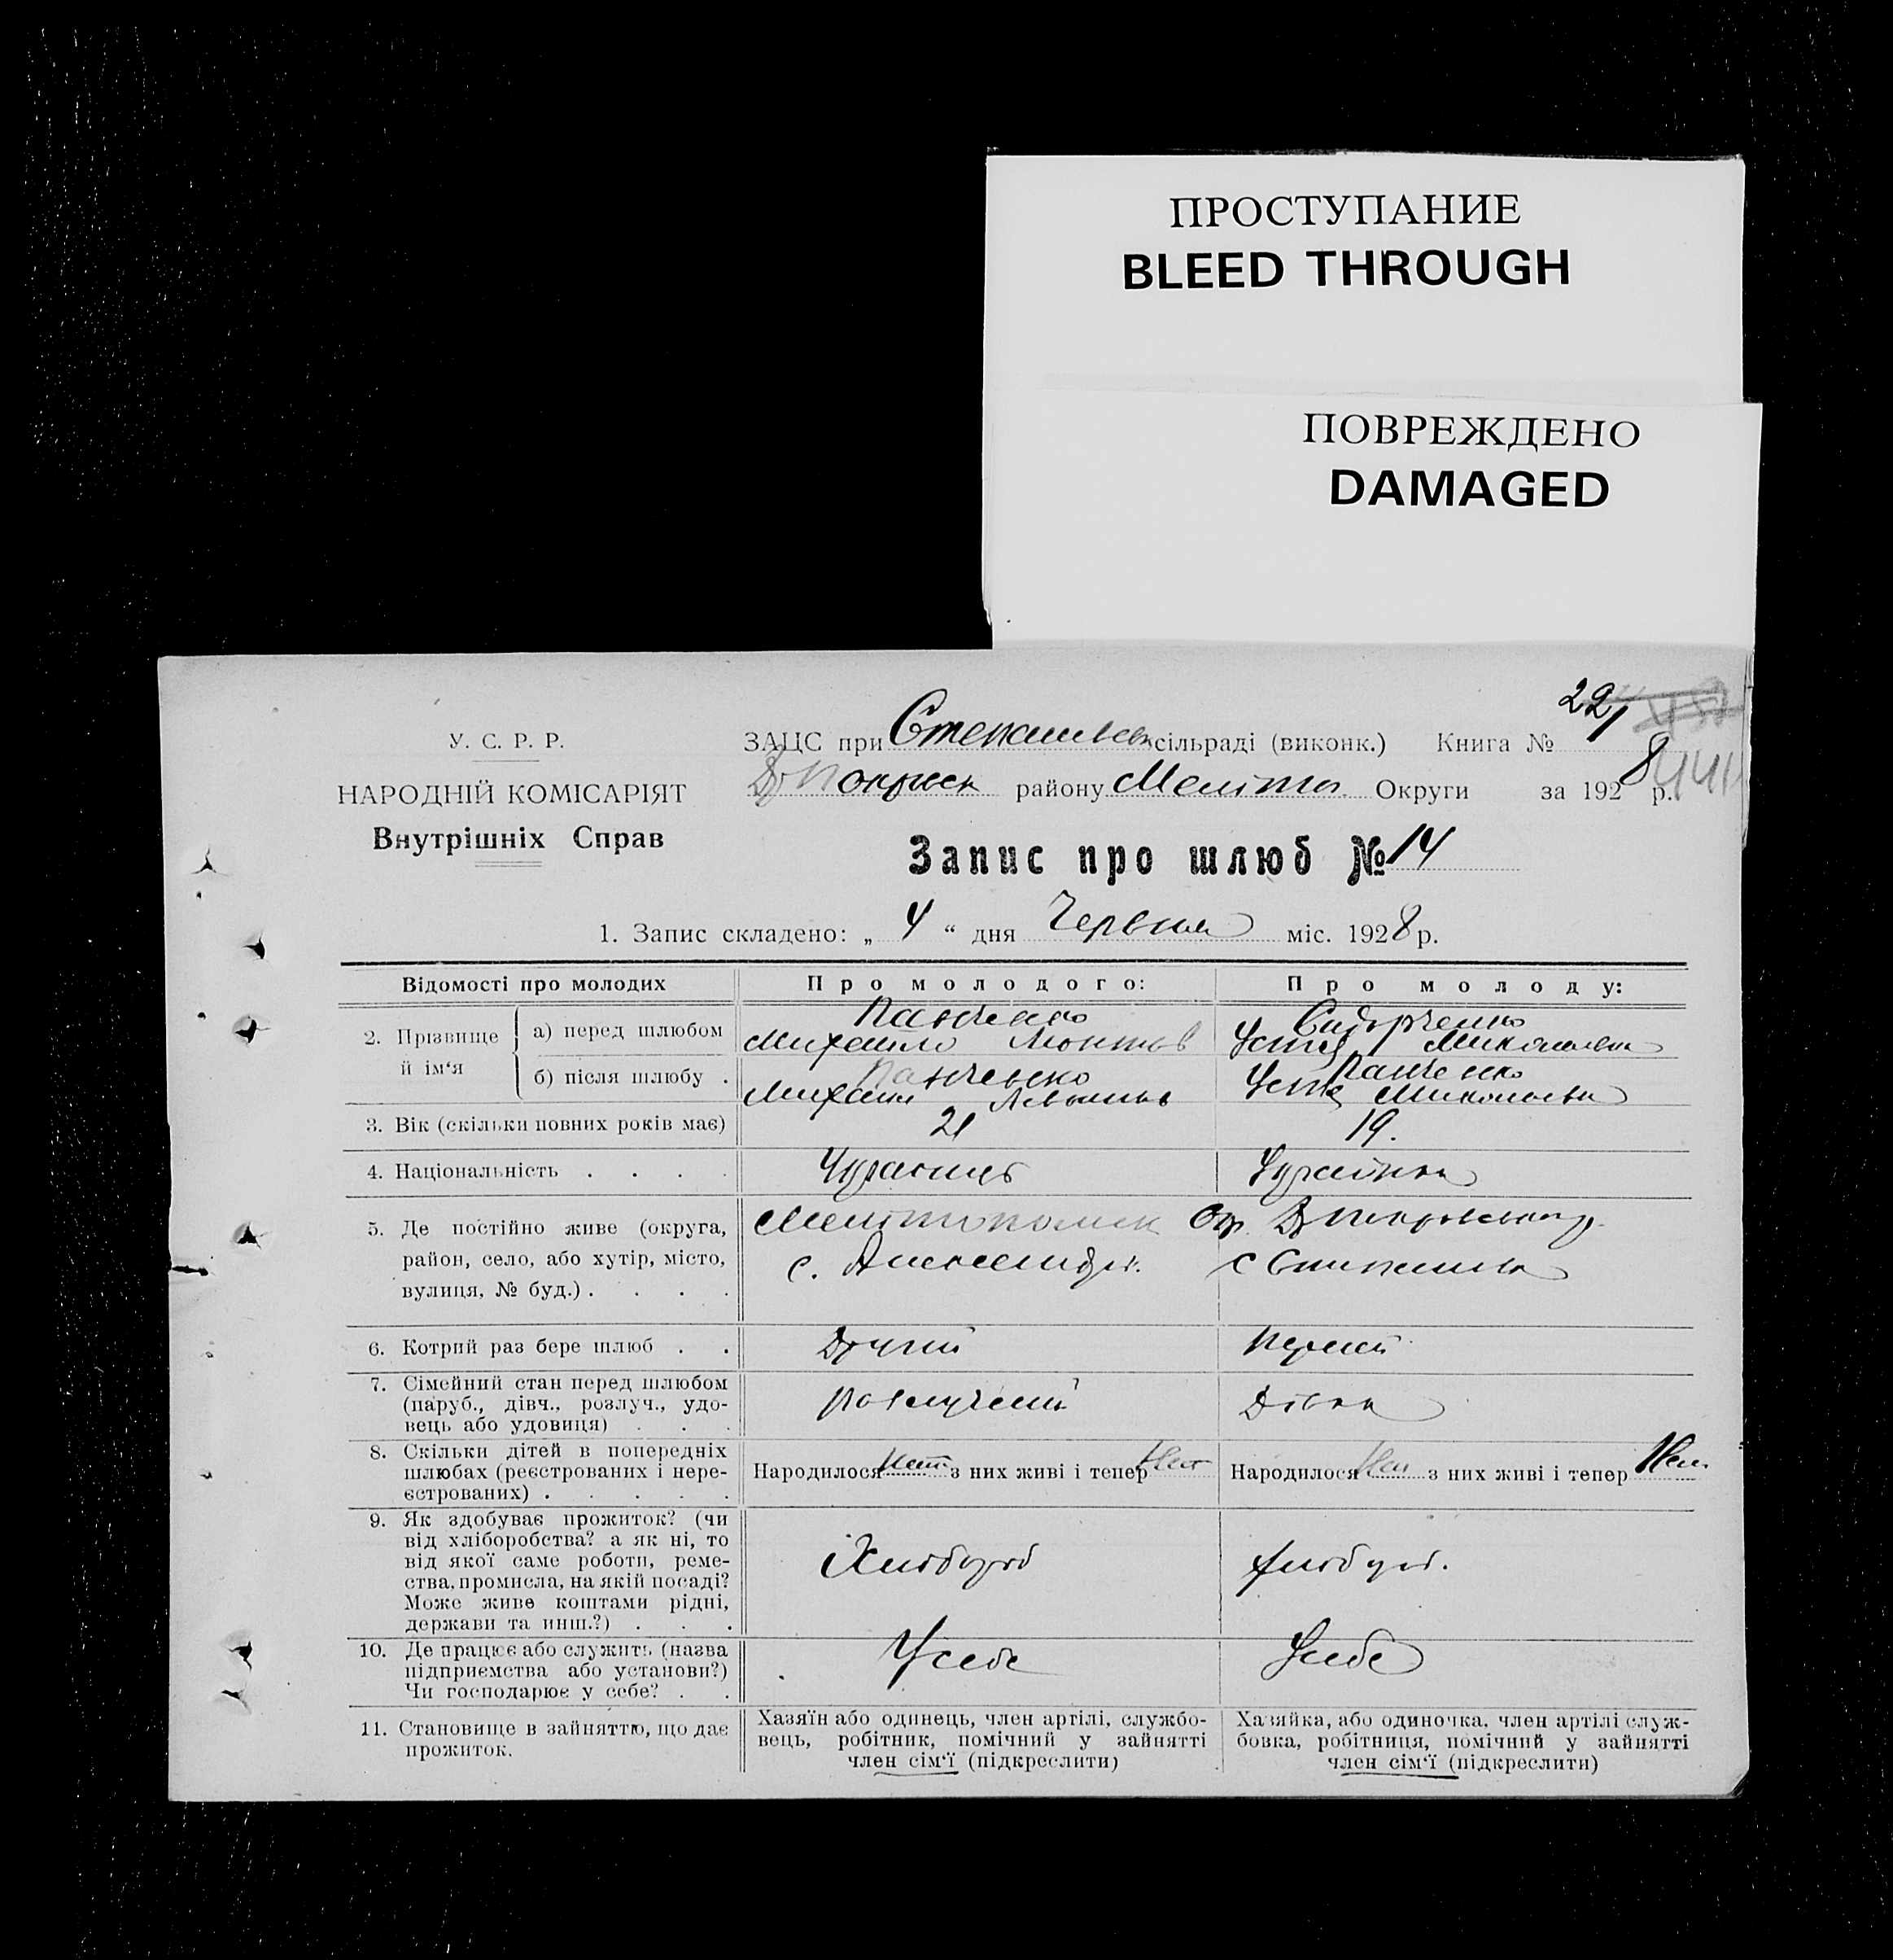 ПРОСТУПАНИЕ
BLEED THROUGH
ПОВРЕЖДЕНО
DAMAGED
У. С. Р. Р.
НАРОДНІЙ КОМІСАРІЯТ
Внутрішніх Справ
ЗАЦС при сільраді (виконк.) Книга № 22
району Меліто. Округи за 1928 р.
Запис про шлюб № 14
1. Запис складено: „ 4 “ дня Червня міс. 1928 р.
Відомості про молодих Про молодого: Про молоду:
2. Прізвище й ім‘я
а) перед шлюбом Панченко Сидорченко
Михайло Миколаевна
б) після шлюбу . Панченко Панченко
Михайло Миколаевна
3. Вік (скільки повних років має) 21 19.
4. Національність . . . . Украінець Украінка
5. Де постійно живе (округа,
район, село, або хутір, місто,
вулиця, № буд.) . . . .
Мелітопольск Окр.
с. с
6. Котрий раз бере шлюб . . Другий первий
7. Сімейний стан перед шлюбом
(паруб., дівч., розлуч., удо-
вець або удовиця) . . .
Дівка
8. Скільки дітей в попередніх
шлюбах (реєстрованих і нере-
єстрованих) . . . . .
Народилося Нет з них живі і тепер Нет Народилося Нет з них живі і тепер Нет
9. Як здобуває прожиток? (чи
від хліборобства? а як ні, то
від якої саме роботи, реме-
ства, промисла, на якій посаді?
Може живе коштами рідні,
держави та инш.?) . . .
Хлібороб хлібороб.
10. Де працює або служить (назва
підприємства або установи?)
Чи господарює у себе? . .
У себе У себе
11. Становище в зайняттю, що дає
прожиток.
Хазяїн або одинець, член артілі, службо-
вець, робітник, помічний у зайнятті
член сім‘ї (підкреслити)
Хазяйка, або одиночка, член артілі служ-
бовка, робітниця, помічний у зайнятті
член сім‘ї (підкреслити)